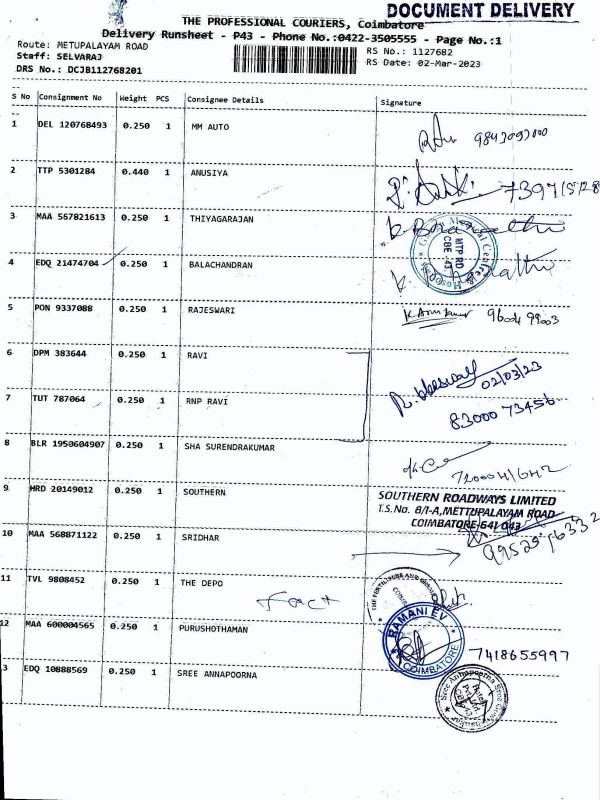 DOCUMENT DELIVERY
THE PROFESSIONAL COURIERS, Coimbatore
Delivery Runsheet - P43 - Phone No.:0422-3505555 - Page No.:1
Route: METUPALAYAM ROAD
Staff: SELVARAJ
DRS No.: DCJB112768201
RS No.: 1127682
RS Date: 02-Mar-2023
S No Consignment No Weight PCS Consignee Details Signature
1 DEL 120768493 0.250 1 MM AUTO
2 TTP 5301284 0.440 1 ANUSIYA
3 MAA 567821613 0.250 1 THIYAGARAJAN
4 EDQ 21474704 0.250 1 BALACHANDRAN
5 PON 9337088 0.250 1 RAJESWARI
6 DPM 383644 0.250 1 RAVI
02/03/23
7 TUT 787064 0.250 1 RNP RAVI
83000 73456
8 BLR 1950604907 0.250 1 SHA SURENDRAKUMAR
9 HRD 20149012 0.250 1 SOUTHERN
SOUTHERN ROADWAYS LIMITED
T.S.No. 8/1-A, METTUPALAYAM ROAD
COIMBATORE-641 043
10 MAA 568871122 0.250 1 SRIDHAR
11 TVL 9808452 0.250 1 THE DEPO
Fact
12 MAA 600004565 0.250 1 PURUSHOTHAMAN
RAMANI EV
COIMBATORE
7418655997
3 EDQ 10888569 0.250 1 SREE ANNAPOORNA